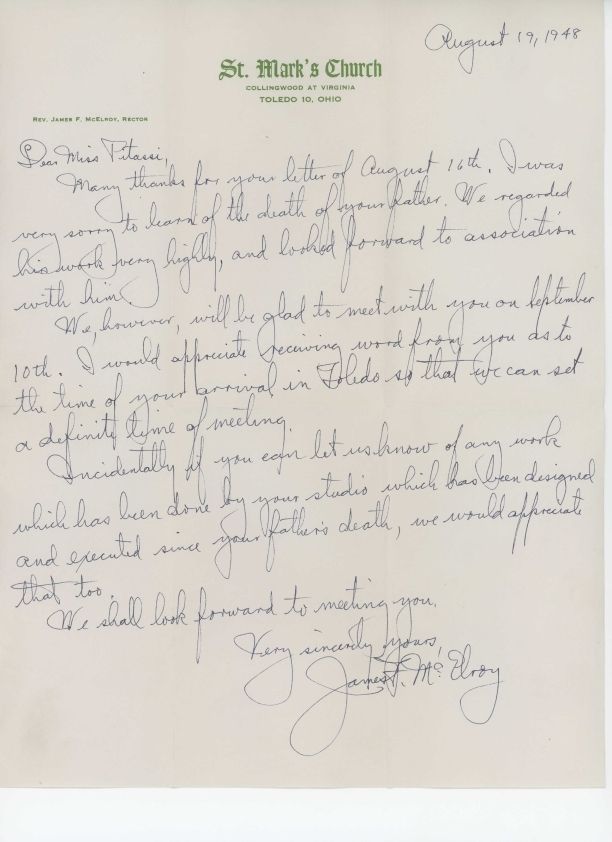 August 19, 1948
St. Mark's Church
COLLINGWOOD AT VIRGINIA
TOLEDO 10, OHIO
REV. JAMES F. McELROY, RECTOR
Dear Miss Pitassi,
Many thanks for your letter of August 16th. I was
very sorry to learn of the death of your father. We regarded
his work very highly, and looked forward to association
with him.
We, however, will be glad to meet with you on September
10th. I would appreciate receiving word from you as to
the time of your arrival in Toledo so that we can set
a definite time of meeting.
Incidentally if you can let us know of any work
which has been done by your studio which has been designed
and executed since your father's death, we would appreciate
that too.
We shall look forward to meeting you.
Very sincerely yours,
James F. McElroy